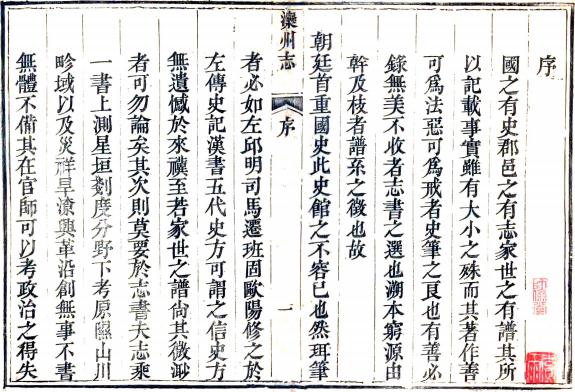 序
國之有史郡邑之有志家世之有譜其所
以記載事實雖有大小之殊而其著作善
可爲法惡可爲戒者史筆之良也有善必
錄無美不收者志書之選也溯本窮源由
幹及枝者譜系之徵也故
朝廷首重國史此史館之不容已也然珥筆
灤州志
序
一
者必如左邱明司馬遷班固歐陽修之於
左傳史記漢書五代史方可謂之信史方
無遺憾於來禩至若家世之譜尙其微渺
者可勿論矣其次則莫要於志書夫志乘
一書上測星垣剗度分野下考原隰山川
畛域以及災祥旱潦興革沿創無事不書
無體不備其在官師可以考政治之得失